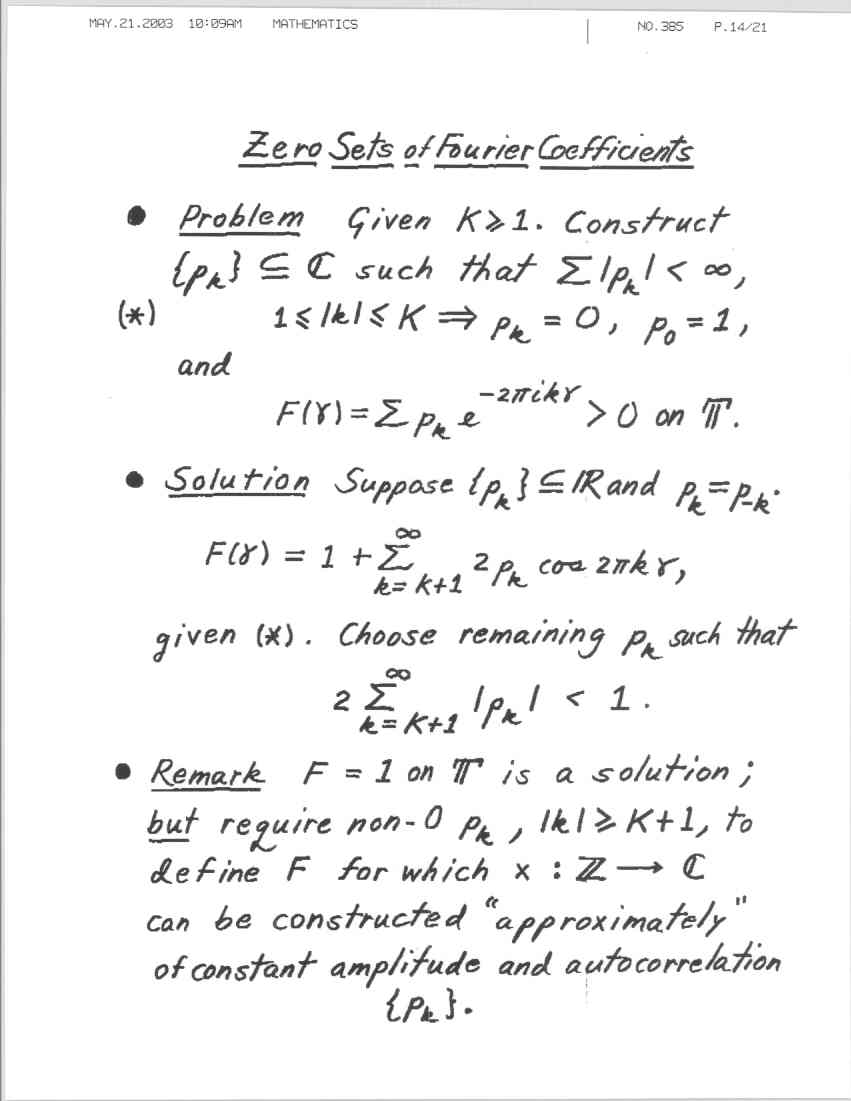 MAY.21.2003 10:09AM MATHEMATICS NO.385 P.14/21
Zero Sets of Fourier Coefficients
• Problem Given K ≥ 1. Construct
{p_k} ⊆ ℂ such that Σ|p_k| < ∞,
(*) 1 ≤ |k| ≤ K ⇒ p_k = 0, p_0 = 1,
and
F(γ) = Σ p_k e^{-2πikγ} > 0 on 𝕋.
• Solution Suppose {p_k} ⊆ ℝ and p_k = p_{-k}.
F(γ) = 1 + Σ_{k=K+1}^{∞} 2p_k cos 2πkγ,
given (*). Choose remaining p_k such that
2 Σ_{k=K+1}^{∞} |p_k| < 1.
• Remark F = 1 on 𝕋 is a solution;
but require non-0 p_k, |k| ≥ K+1, to
define F for which x : ℤ → ℂ
can be constructed "approximately"
of constant amplitude and autocorrelation
{p_k}.